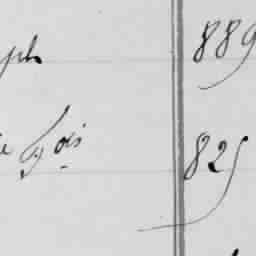 yph 889
e fçois 825